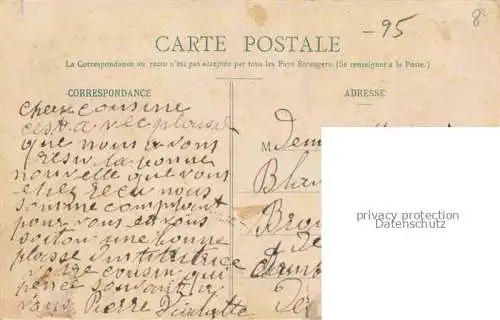 -95
CARTE POSTALE
La Correspondance au recto n'est pas acceptée par tous les Pays Étrangers. (Se renseigner à la Poste.)
CORRESPONDANCE
ADRESSE
chere cousine
cest avec plaisir
que nous avons
resu la bonne
nouvelle que vous
etiez recu nous
somme comptant
pour vous et vous
soiton une bonne
plasse d'institutrice
votre cousin qui
pence souvant a
vous Pierre
M
Dem
Blan
Bro
privacy protection
Datenschutz